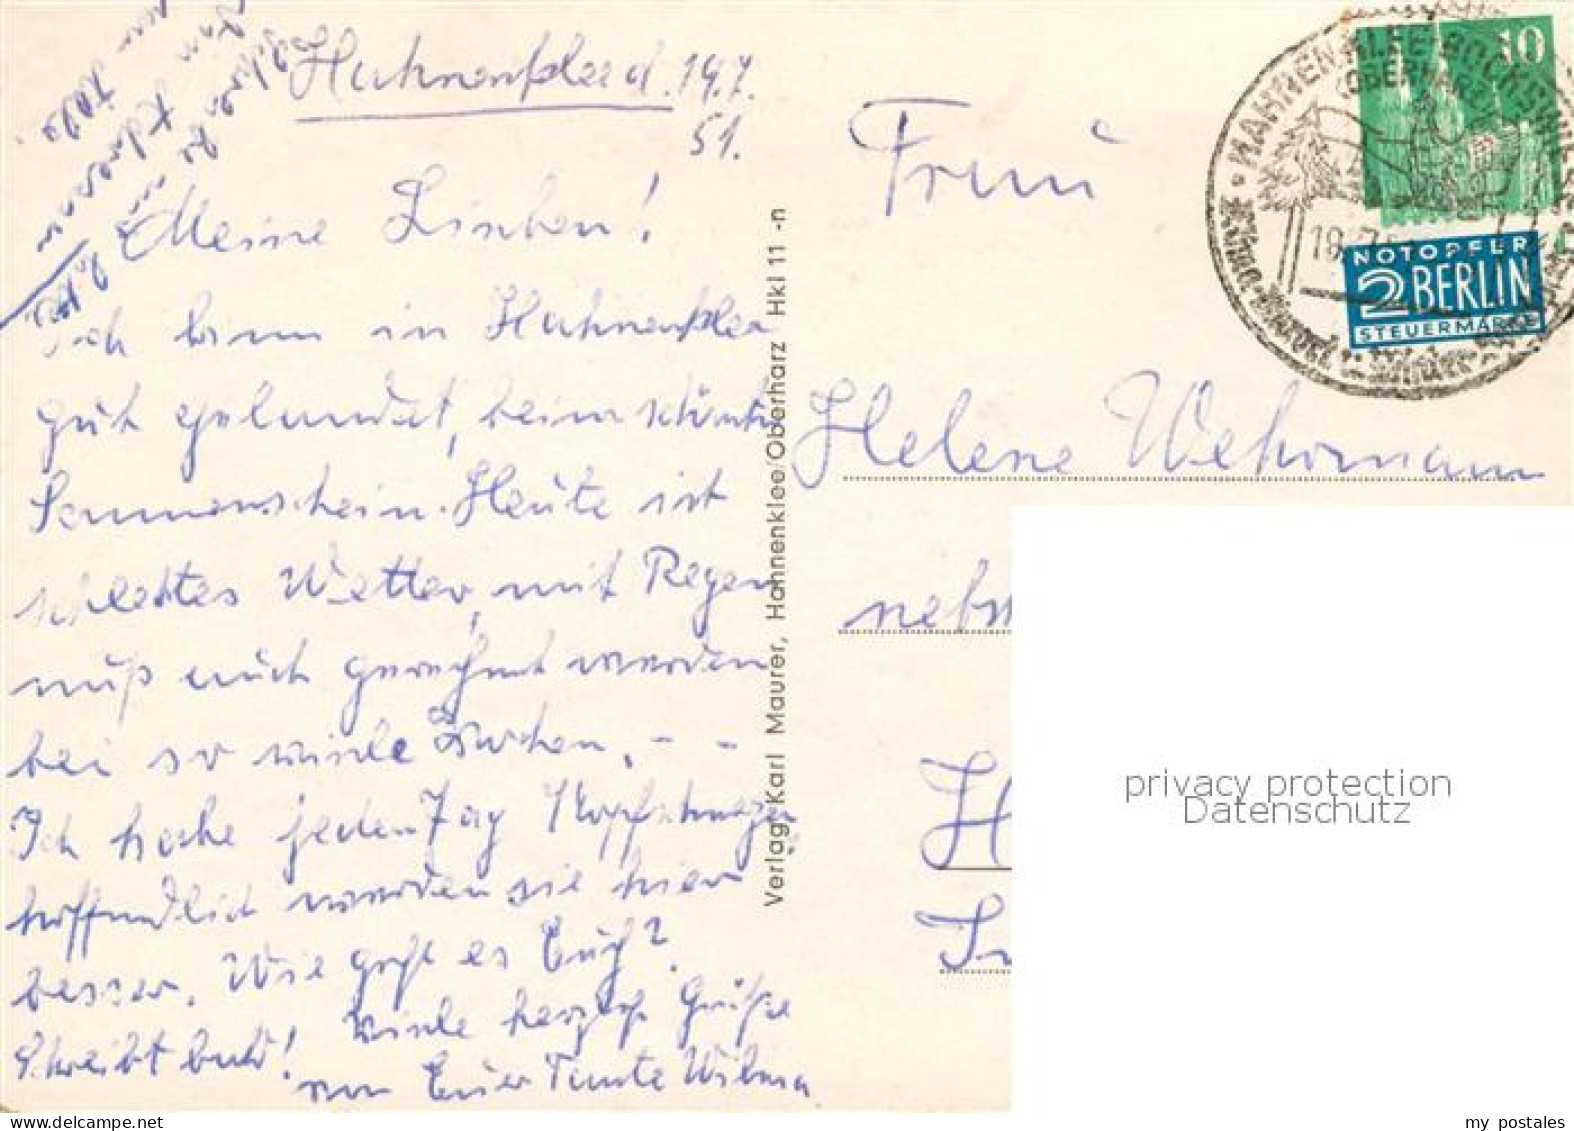 Hahnenklee d. 19.7.
51.
Meine Lieben!
Ich bin in Hahnenklee
gut gelandet, beim schönsten
Sonnenschein. Heute ist
schlechtes Wetter, mit Regen
muß auch gerechnet werden
bei so viele Wochen. - -
Ich habe jeden Tag Kopfschmerzen
hoffendlich werden sie hier
besser. Wie geht es Euch?
Schreibt bald! Viele herzlich Grüße
von Euer Tante Wilma
Verlag Karl Maurer, Hahnenklee/Oberharz Hkl 11 -n
Frau
Helene Wehrmann
nebst
H
10
HAHNENKLEE-BOCKSWIESE
(OBERHARZ)
NOTOPFER
2 BERLIN
STEUERMARKE
privacy protection
Datenschutz
my postales